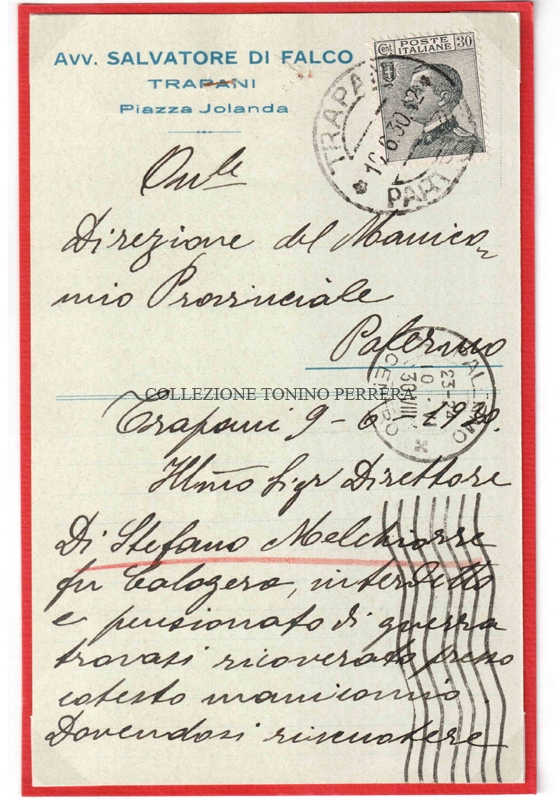 Avv. SALVATORE DI FALCO
TRAPANI
Piazza Jolanda
POSTE ITALIANE
Cent. 30
TRAPANI
10.6.30.12
PART
Onle
Direzione del Manico
mio Provinciale
Palermo
PALERMO
CENTRO
COLLEZIONE TONINO PERRERA
Trapani 9-6-1930.
Illmo Sigr Direttore
Di Stefano Melchiorre
fu Calogero, interdetto
e pensionato di guerra
trovasi ricoverato presso
cotesto manicomio.
Dovendosi riscuotere